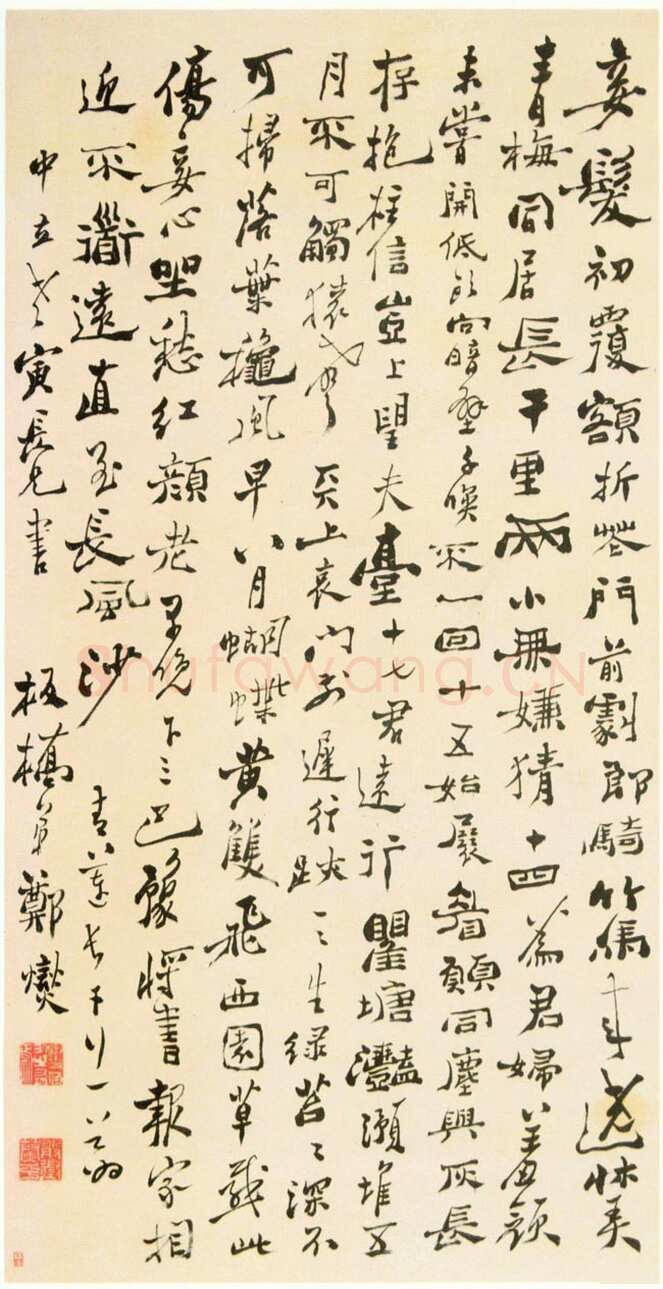 妾髮初覆額折花門前劇郎騎竹馬來遶牀弄
青梅同居長干里兩小無嫌猜十四為君婦羞顏
未嘗開低頭向暗壁千喚不一回十五始展眉願同塵與灰長
存抱柱信豈上望夫臺十七君遠行瞿塘灩澦堆五
月不可觸猿聲天上哀門前遲行跡一一生綠苔苔深不
可掃落葉秋風早八月蝴蝶黄雙飛西園草感此
傷妾心坐愁紅顏老早晚下三巴預將書報家相
迎不道遠直至長風沙 青蓮長干行一首為
中立老寅長兄書 板橋弟鄭燮
Shufawang.CN